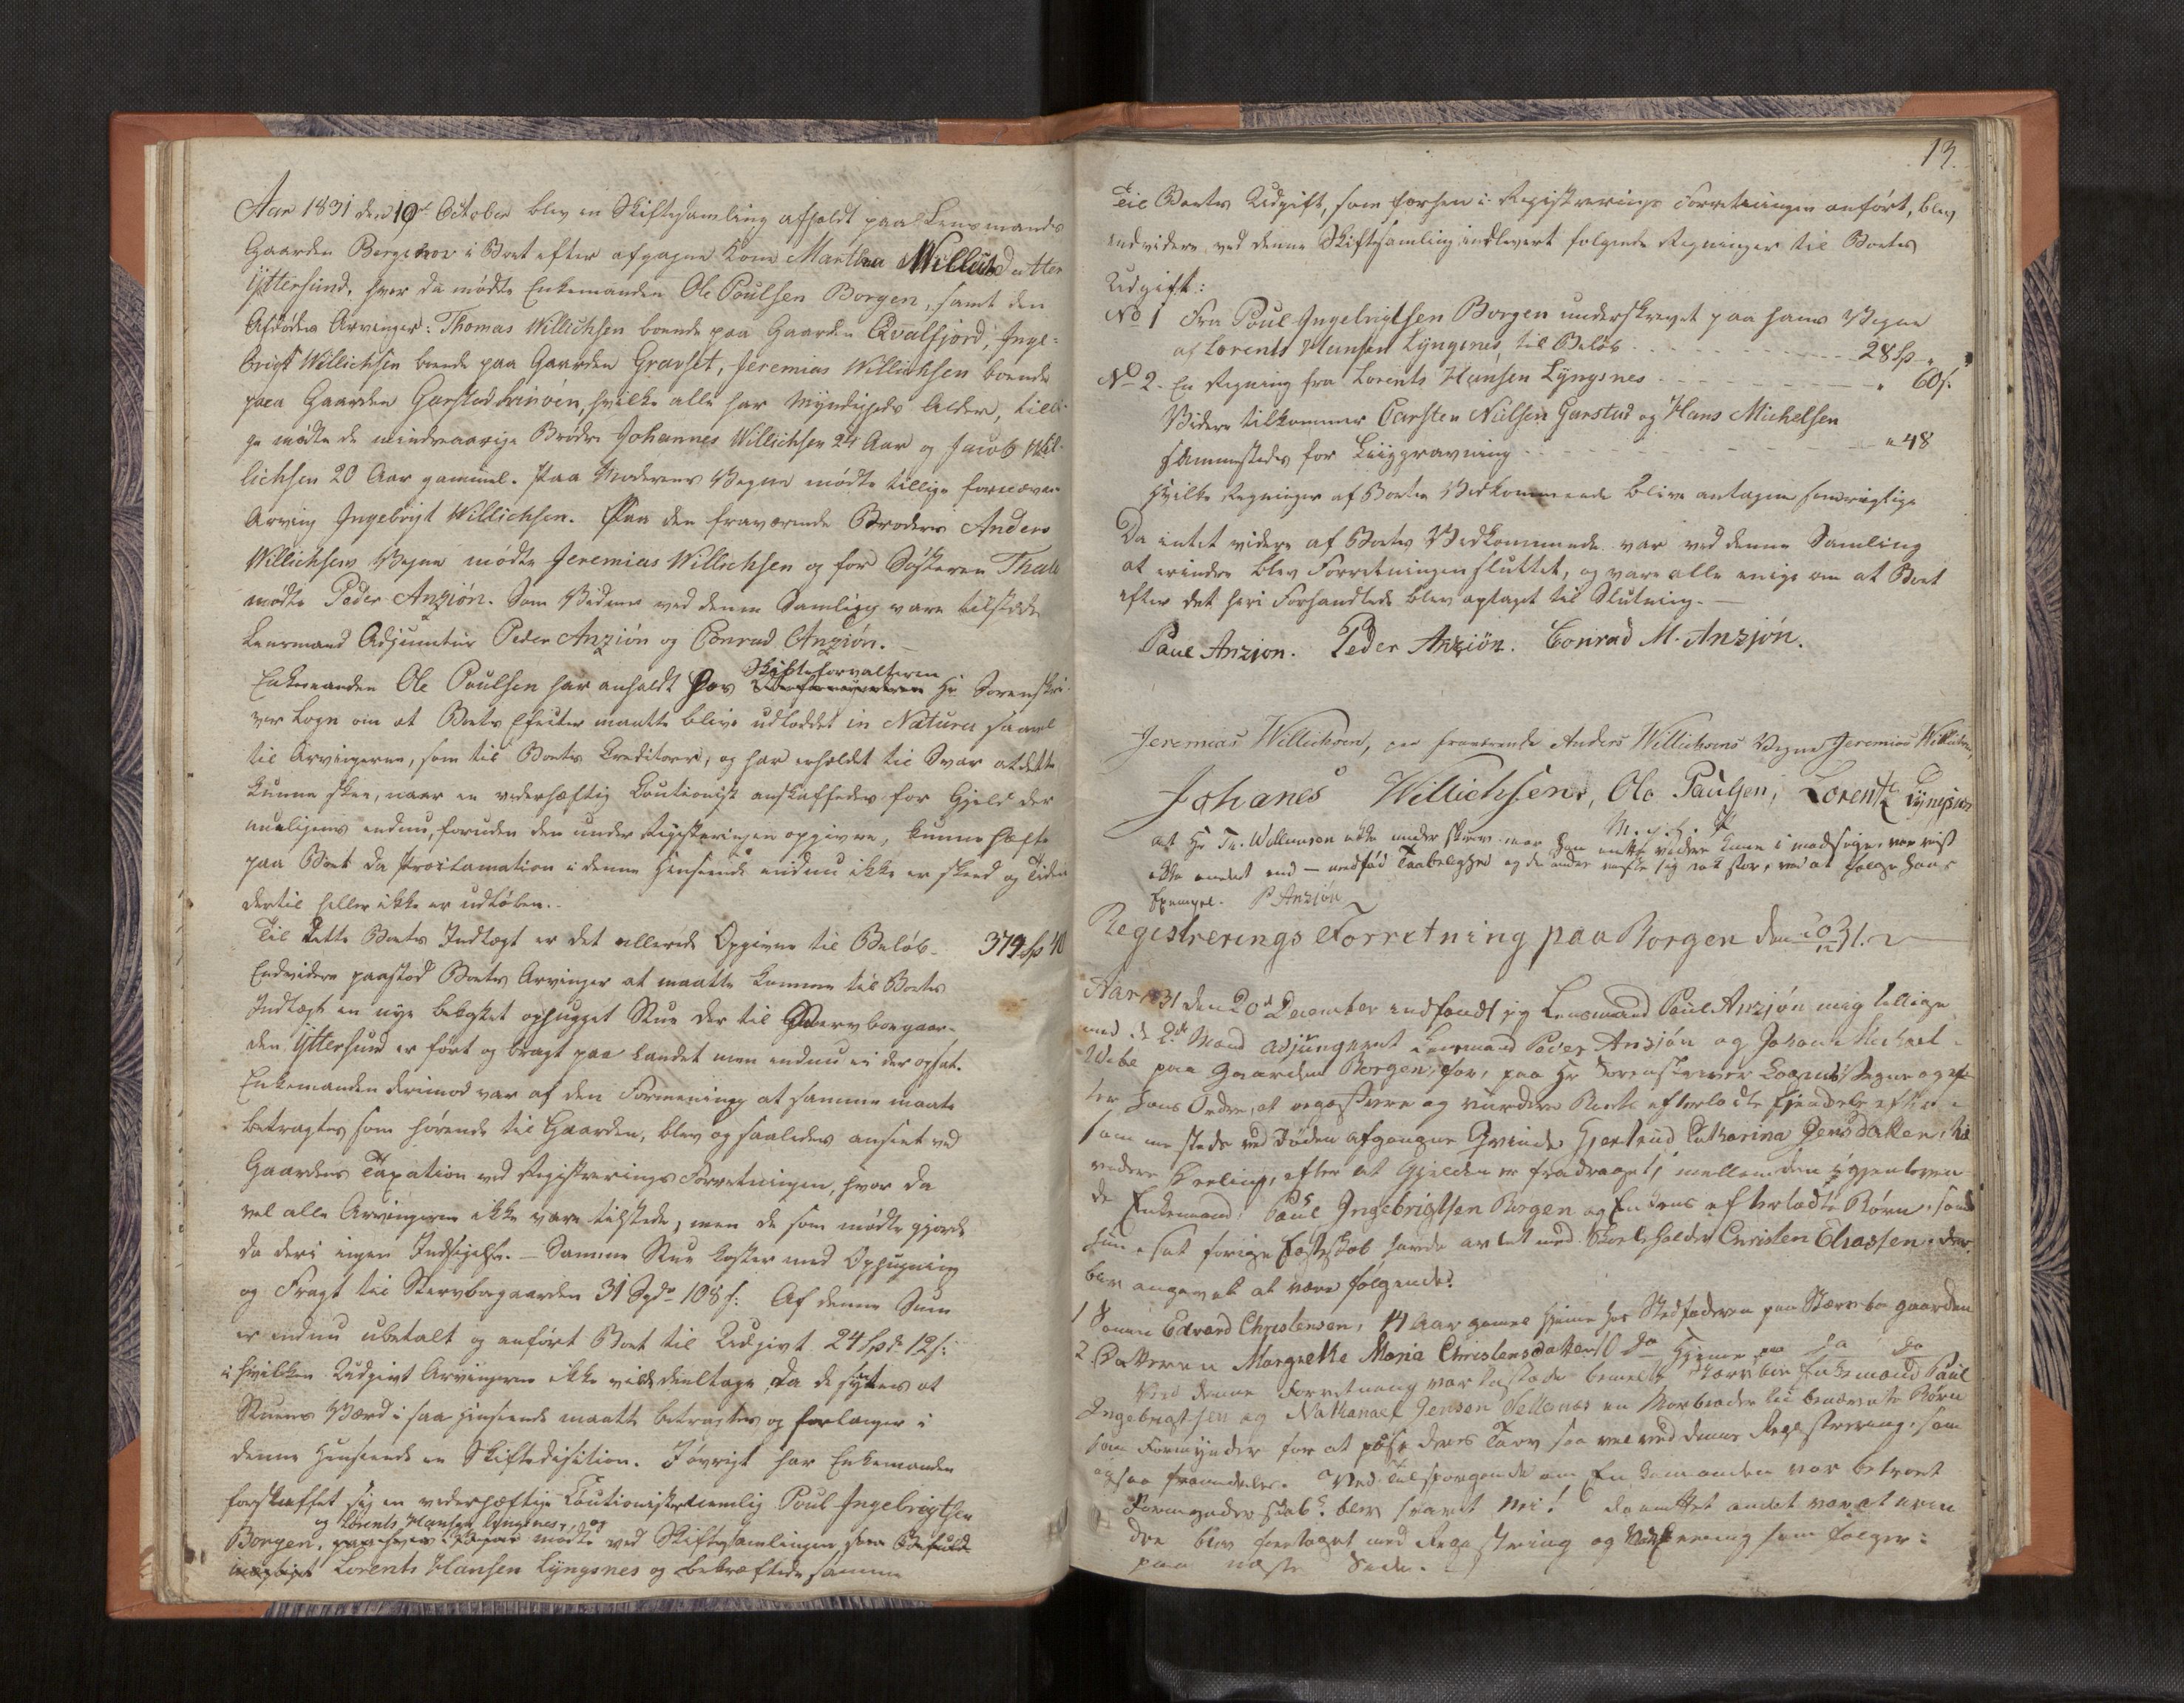 Aar 1831 den 19de October blev en Skiftesamling afholdt paa Lensmands
Gaarden Bergsnov i Boet efter afgagne Kone Marthea Willichsdatter
Yttersund, hvor da mødte Enkemanden Ole Poulsen Borgen, samt den
Afdødes Arvinger: Thomas Willichsen boende paa Gaarden Qvalfjord, Inge-
brigt Willichsen boende paa Gaarden Gravset, Jeremias Willichsen boende
paa Gaarden Garstad, hvilke alle har Myndigheds Alder, tilli-
ge mødte de mindreaarige Brødre Johannes Willichsen 24 Aar og Jacob Wil-
lichsen 20 Aar gammel. Paa Moderens Vegne mødte tillige fornævnte
Arving Ingebrigt Willichsen. Paa den fraværende Broders Anders
Willichsens Vegne mødte Jeremias Willichsen og for Søsteren Thale
mødte Peder Anzjøn. Som Vidner ved denne Samling vare tilstede
Lensmand Adjunctus Peder Anzjøn og Conrad Anzjøn.
Skifteforvalteren
Enkemanden Ole Poulsen har anholdt hos Hr Sorenskri-
ver Logn om at Boets Effecter maatte blive udloddet in Natura saavel
til Arvingerne, som til Boets Creditorer, og har erholdet til Svar at dette
kunne skee, naar en vederhæftig Cautionist anskaffedes for Gjeld der
mueligens endnu, foruden den under Registeringen opgivne, kunne hæfte
paa Boet da Proclamation i denne Henseende endnu ikke er skeed og Tiden
dertil heller ikke er udløben.
Til dette Boets Indtægt er det allerede Opgivne til Beløb 374 Sp 40
Endvidere paastod Boets Arvinger at maatte komme til Boets
Indtægt en nye bekostet ophugget Stue der til Stervboegaar-
den Yttersund er ført og bragt paa Landet men endnu ei der opsat.
Enkemanden derimod var af den Formening at samme maate
betragtes som hørende til Gaarden, blev og saaledes anseet ved
Gaardens Taxation ved Registrerings Forretningen, hvor da
vel alle Arvingerne ikke vare tilstede, men de som mødte gjorde
da deri ingen Indsigelse. – Samme Stue koster med Ophugning
og Fragt til Stervboegaarden 31 Spd 108 s: Af denne Sum
er endnu ubetalt og anført Boet til Udgivt 24 Spd 12 s:
i hvilken Udgivt Arvingerne ikke vilde deeltage, da de synes at
Stuens Værd i saa Henseende maatte betragtes og forlanger i
denne Henseende en Skiftedisition. Iøvrigt har Enkemanden
forskaffet sig en vederhæftig Cautionist nemlig Poul Ingebrigtsen
og Lorents Hansen Lyngsnes, og
Borgen, mødte ved Skiftesamlingen
Lorents Hansen Lyngsnes og bekræftede samme
13.
Til Boets Udgift, som forhen i Registrerings Forretningen anført, blev
endvidere ved denne Skiftesamling indlevert følgende Regninger til Boets
Udgift:
No 1 Fra Poul Ingebrigtsen Borgen underskrevet paa hans Vegne
af Lorents Hansen Lyngsnes, til Beløb 28 Sp " "
No 2. En Regning fra Lorents Hansen Lyngsnes " 60 s.
Videre tilkommer Carsten Nielsen Garstad og Hans Michelsen
sammestedes for Liiggravning " 48
Hvilke Regninger af Boets Vedkommende blive antagen som rigtige
Da intet videre af Boets Vedkommende var ved denne Samling
at erindre blev Forretningen sluttet, og vare alle enige om at Boet
efter det heri Forhandlede blev optaget til Slutning.
Paul Anzjon. Peder Anzjön. Conrad M. Anzjøn.
Jeremias Willichsen, paa fraværende Anders Willichsens Vegne Jeremias Willichsen,
Johanes Willichsen, Ole Paulsen, Lorentz Lyngsnes
M. f. P.
at Hr Th. Willumsen ikke underskrev mer han intet videre kune i modsige, var vist
ikke andet end – medfød Taabelighed og de andre viiste sig nok stor, ved at følge hans
Exempel. P Anzjøn
Registrerings Forretning paa Borgen den 20/12 31.
Aar 1831 den 20de December indfandt jeg Lensmand Paul Anzjón mig tillige
med 2de Mænd adjungeret Lensmand Peder Anzjón og Johan Michael
Wibe paa Gaarden Borgen, for, paa Hr Sorenskriver Logns Vegne og ef-
ter hans Ordre, at registrere og vurdere Boets efterladte Ejendele efter
sammesteds ved Døden afgangne Qvinde Gjertrud Catharina Jensdatter, til
videre Deeling, efter at Gjelden er fradraget, mellem den igjenleven-
de Enkemand, Paul Ingebrigtsen Borgen og Enkens efterladte Børn, som
hun i sit forige Egteskab havde avlet med Skoleholder Christen Eliassen, der
blev angivet at være følgende:
1 Sønnen Edvard Christensen, 14 Aar gamel hjeme hos Stedfaderen paa Stervbogaarden
2 Datteren Margrethe Maria Christensdatter 10 do Hjeme paa do do
Ved denne Forretning var tilstede bemelte Stervbo Enkemand Paul
Ingebrigtsen og Nathanael Jensen Sellanes en Morbroder til benævnte Børn
som Formynder for at passe deres Tarv saa vel ved denne Registrering, som
ogsaa fremdeles. Ved Tilspørgende om Enkemanden var betroet
Formynderskab? blev svaret Nei! da intet andet var at erin-
dre blev foretaget med Registrering og Vurdering som følger:
paa næste Side.